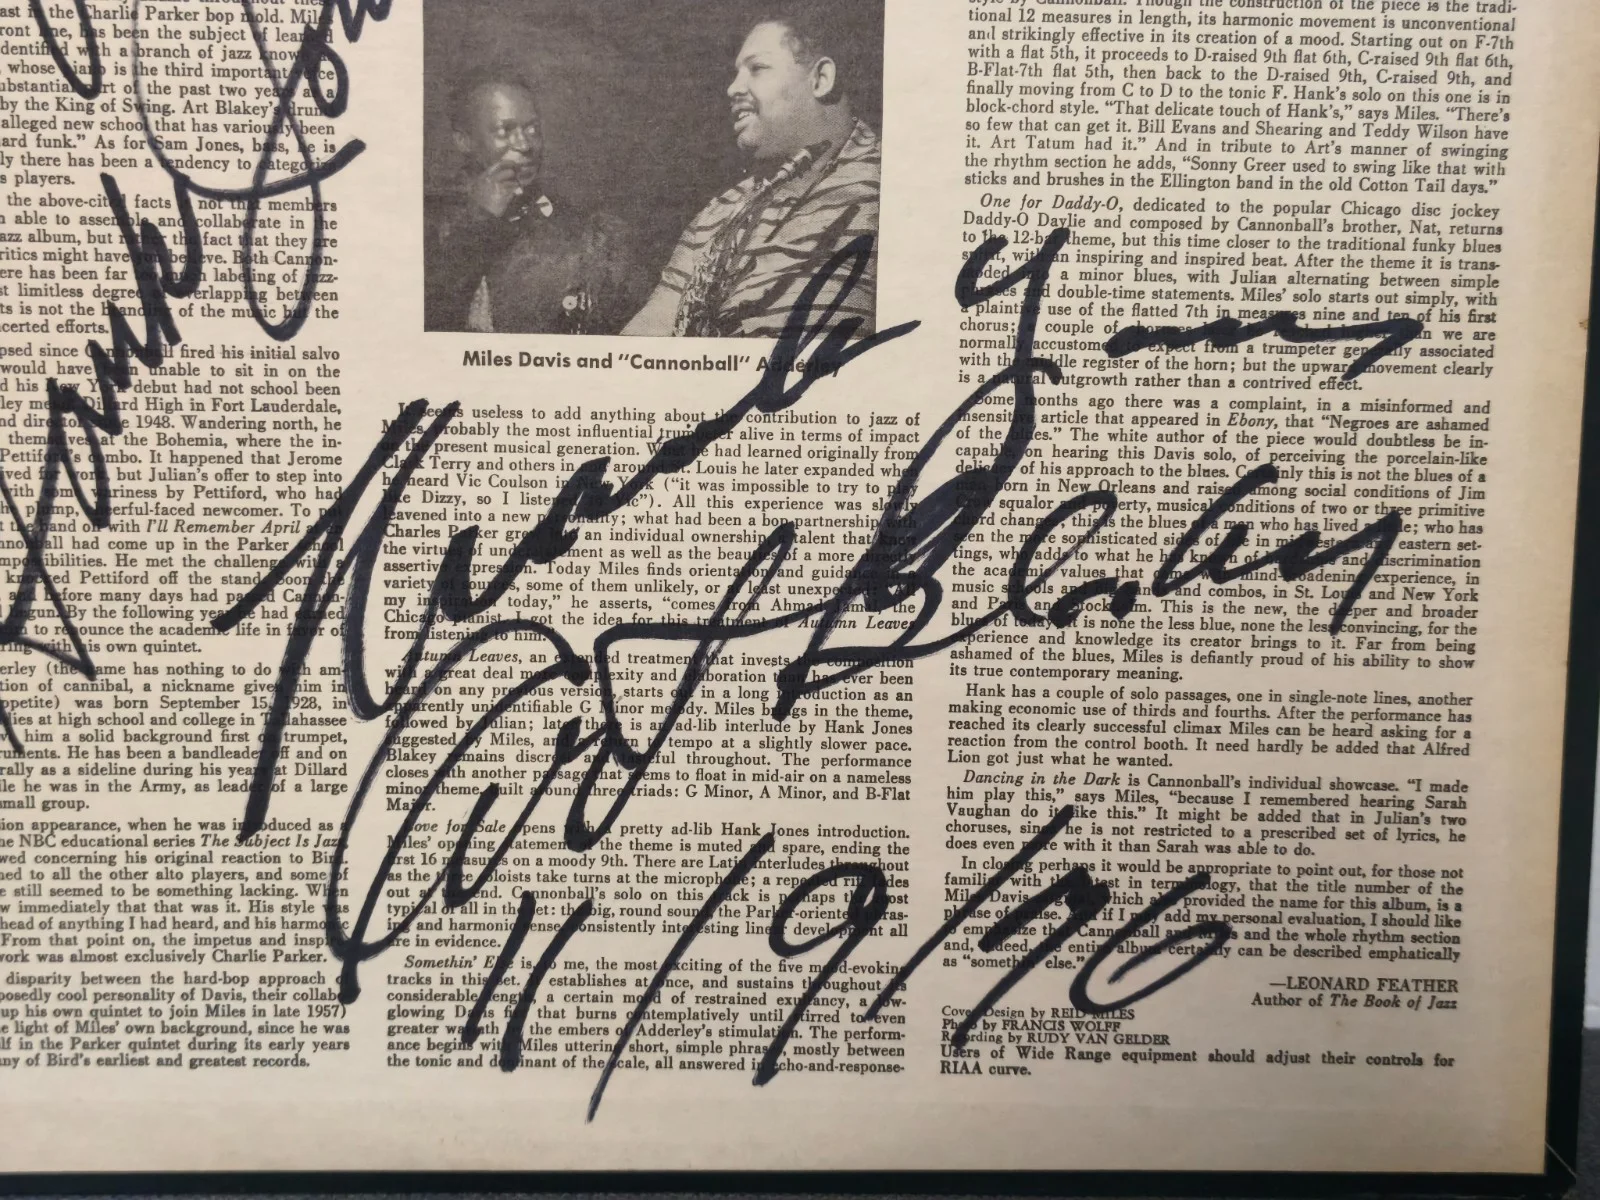 ast in the Charlie Parker bop mold. Miles
front line, has been the subject of learned
identified with a branch of jazz known as
, whose piano is the third important voice
substantial part of the past two years as a
by the King of Swing. Art Blakey's drums
alleged new school that has variously been
hard funk." As for Sam Jones, bass, he is
ly there has been a tendency to categorize
s players.
the above-cited facts is not that members
n able to assemble and collaborate in the
azz album, but rather the fact that they are
critics might have you believe. Both Cannon-
ere has been far too much labeling of jazz-
st limitless degree of overlapping between
ts is not the branding of the music but the
certed efforts.
psed since Cannonball fired his initial salvo
would have been unable to sit in on the
d his New York debut had not school been
ley me Dillard High in Fort Lauderdale,
nd director since 1948. Wandering north, he
themselves at the Bohemia, where the in-
Pettiford's combo. It happened that Jerome
ived for work, but Julian's offer to step into
with some wariness by Pettiford, who had
he plump, cheerful-faced newcomer. To put
t the band off with I'll Remember April at an
nnonball had come up in the Parker school
mpossibilities. He met the challenge with a
knocked Pettiford off the stand. Soon the
, and before many days had passed Cannon-
begun. By the following year he had earned
to renounce the academic life in favor of
ring with his own quintet.
erley (the name has nothing to do with am-
tion of cannibal, a nickname given him in
ppetite) was born September 15, 1928, in
lies at high school and college in Tallahassee
ve him a solid background first on trumpet,
ruments. He has been a bandleader off and on
rally as a sideline during his years at Dillard
ile he was in the Army, as leader of a large
small group.
sion appearance, when he was introduced as a
he NBC educational series The Subject Is Jazz,
wed concerning his original reaction to Bird.
ned to all the other alto players, and some of
e still seemed to be something lacking. When
w immediately that that was it. His style was
head of anything I had heard, and his harmonic
From that point on, the impetus and inspir
work was almost exclusively Charlie Parker.
disparity between the hard-bop approach of
pposedly cool personality of Davis, their collabo
up his own quintet to join Miles in late 1957)
e light of Miles' own background, since he was
lf in the Parker quintet during its early years
any of Bird's earliest and greatest records.
Miles Davis and "Cannonball" Adderley
It seems useless to add anything about the contribution to jazz of
Miles, probably the most influential trumpeter alive in terms of impact
on the present musical generation. What he had learned originally from
Clark Terry and others in and around St. Louis he later expanded when
he heard Vic Coulson in New York ("it was impossible to try to play
like Dizzy, so I listened to Vic"). All this experience was slowly
leavened into a new personality; what had been a bop partnership with
Charles Parker grew into an individual ownership, a talent that knew
the virtues of understatement as well as the beauties of a more directly
assertive expression. Today Miles finds orientation and guidance in a
variety of sources, some of them unlikely, or at least unexpected: "All
my inspiration today," he asserts, "comes from Ahmad Jamal, the
Chicago pianist. I got the idea for this treatment of Autumn Leaves
from listening to him."
Autumn Leaves, an extended treatment that invests the composition
with a great deal more complexity and elaboration than has ever been
heard on any previous version, starts out in a long introduction as an
apparently unidentifiable G Minor melody. Miles brings in the theme,
followed by Julian; later there is an ad-lib interlude by Hank Jones
suggested by Miles, and a return to tempo at a slightly slower pace.
Blakey remains discreet and tasteful throughout. The performance
closes with another passage that seems to float in mid-air on a nameless
minor theme, built around three triads: G Minor, A Minor, and B-Flat
Major.
Love for Sale opens with a pretty ad-lib Hank Jones introduction.
Miles' opening statement of the theme is muted and spare, ending the
first 16 measures on a moody 9th. There are Latin interludes throughout
as the three soloists take turns at the microphone; a repeated riff fades
out at the end. Cannonball's solo on this track is perhaps the most
typical of all in the set: the big, round sound, the Parker-oriented phras-
ing and harmonic sense, consistently interesting linear development all
are in evidence.
Somethin' Else is, to me, the most exciting of the five mood-evoking
tracks in this set. It establishes at once, and sustains throughout its
considerable length, a certain mood of restrained exultancy, a low-
glowing Davis fire that burns contemplatively until stirred to even
greater warmth by the embers of Adderley's stimulation. The perform-
ance begins with Miles uttering short, simple phrases, mostly between
the tonic and dominant of the scale, all answered in echo-and-response-
style by Cannonball. Though the construction of the piece is the tradi-
tional 12 measures in length, its harmonic movement is unconventional
and strikingly effective in its creation of a mood. Starting out on F-7th
with a flat 5th, it proceeds to D-raised 9th flat 6th, C-raised 9th flat 6th,
B-Flat-7th flat 5th, then back to the D-raised 9th, C-raised 9th, and
finally moving from C to D to the tonic F. Hank's solo on this one is in
block-chord style. "That delicate touch of Hank's," says Miles. "There's
so few that can get it. Bill Evans and Shearing and Teddy Wilson have
it. Art Tatum had it." And in tribute to Art's manner of swinging
the rhythm section he adds, "Sonny Greer used to swing like that with
sticks and brushes in the Ellington band in the old Cotton Tail days."
One for Daddy-O, dedicated to the popular Chicago disc jockey
Daddy-O Daylie and composed by Cannonball's brother, Nat, returns
to the 12-bar theme, but this time closer to the traditional funky blues
spirit, with an inspiring and inspired beat. After the theme it is trans-
moded into a minor blues, with Julian alternating between simple
phrases and double-time statements. Miles' solo starts out simply, with
a plaintive use of the flatted 7th in measures nine and ten of his first
chorus; a couple of choruses later he reached higher than we are
normally accustomed to expect from a trumpeter generally associated
with the middle register of the horn; but the upward movement clearly
is a natural outgrowth rather than a contrived effect.
Some months ago there was a complaint, in a misinformed and
insensitive article that appeared in Ebony, that "Negroes are ashamed
of the blues." The white author of the piece would doubtless be in-
capable, on hearing this Davis solo, of perceiving the porcelain-like
delicacy of his approach to the blues. Certainly this is not the blues of a
man born in New Orleans and raised among social conditions of Jim
Crow squalor and poverty, musical conditions of two or three primitive
chord changes; this is the blues of a man who has lived a little; who has
seen the more sophisticated sides of life in midwestern and eastern set-
tings, who adds to what he has known of hardships and discrimination
the academic values that came with mind-broadening experience, in
music schools and big bands and combos, in St. Louis and New York
and Paris and Stockholm. This is the new, the deeper and broader
blues of today; it is none the less blue, none the less convincing, for the
experience and knowledge its creator brings to it. Far from being
ashamed of the blues, Miles is defiantly proud of his ability to show
its true contemporary meaning.
Hank has a couple of solo passages, one in single-note lines, another
making economic use of thirds and fourths. After the performance has
reached its clearly successful climax Miles can be heard asking for a
reaction from the control booth. It need hardly be added that Alfred
Lion got just what he wanted.
Dancing in the Dark is Cannonball's individual showcase. "I made
him play this," says Miles, "because I remembered hearing Sarah
Vaughan do it like this." It might be added that in Julian's two
choruses, since he is not restricted to a prescribed set of lyrics, he
does even more with it than Sarah was able to do.
In closing perhaps it would be appropriate to point out, for those not
familiar with the latest in terminology, that the title number of the
Miles Davis original, which also provided the name for this album, is a
phrase of praise. And if I may add my personal evaluation, I should like
to emphasize that Cannonball and Miles and the whole rhythm section
and, indeed, the entire album certainly can be described emphatically
as "somethin' else."
—LEONARD FEATHER
Author of The Book of Jazz
Cover Design by REID MILES
Photo by FRANCIS WOLFF
Recording by RUDY VAN GELDER
Users of Wide Range equipment should adjust their controls for
RIAA curve.